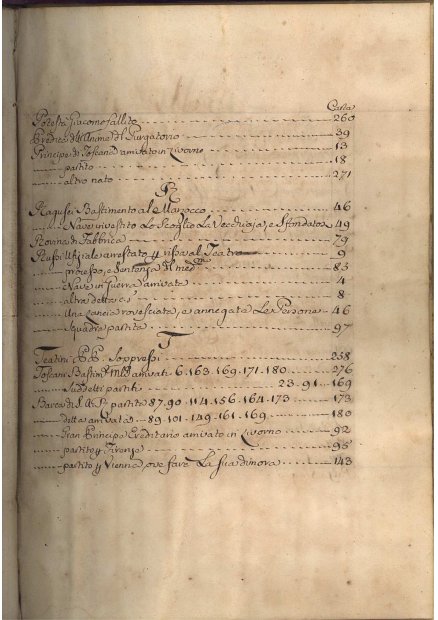 Carta
Potestà Giacomo fallito 260
Predica dell'Anime del Purgatorio 39
Principe di Toscana arrivato in Livorno 13
partito 18
altro nato 271
R
Ragusei Bastimento al Marzocco 46
Nave investito Lo Scoglio La Vecchiaja, e Sfondatos 49
Rovina di Fabbrica 79
Russi Ufiziale arrestato y rissa al Teatro 9
processo, e Sentenza Il med.mo 83
Nave in Guerra arrivata 4
altra detta 8
Una Lancia rovesciata, e annegate Le Persone 46
Squadra partita 97
T
Teatini PP. Soppressi 258
Toscani Bastim.ti arrivati 6.163.169.171.180 276
Suddetti partiti 23.91 169
Barca di S.A.R. partita 87.90.114.156.164.173 173
detta arrivata 89.101.149.161.169 180
Gran Principe Ereditario arrivato in Livorno 92
partito y Firenze 95
partito y Vienna ove fare La Sua dimora 143